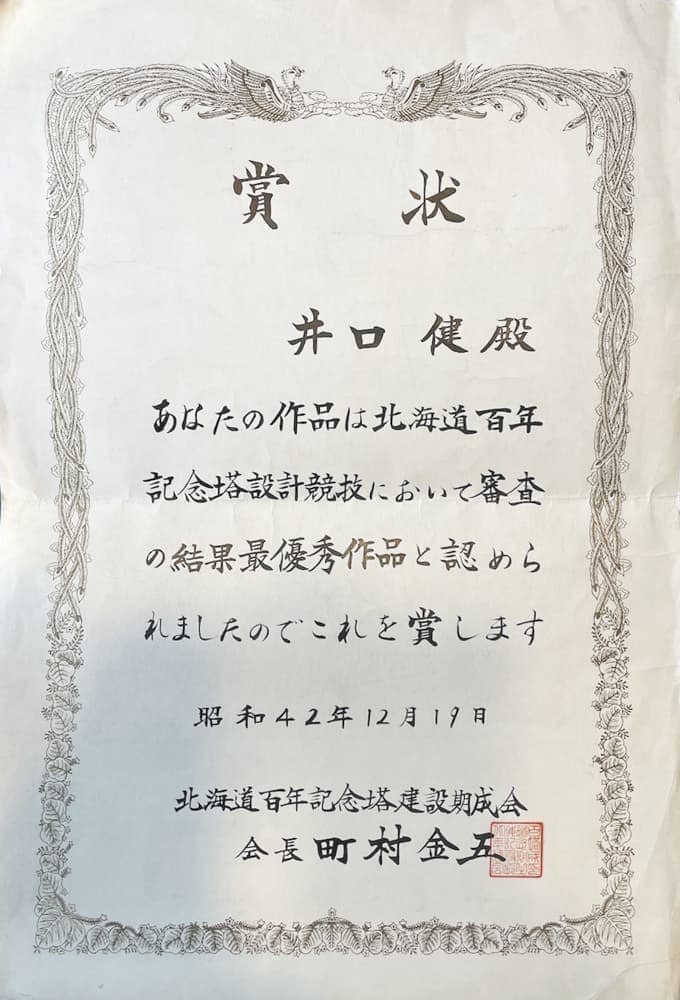 賞状
井口健殿
あなたの作品は北海道百年
記念塔設計競技において審査
の結果最優秀作品と認めら
れましたのでこれを賞します
昭和42年12月19日
北海道百年記念塔建設期成会
会長町村金五